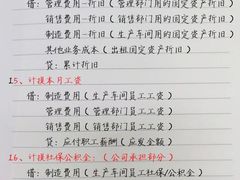 借：管理费用—折旧（管理部门用的固定资产折旧）
销售费用—折旧（销售部门用的固定资产折旧）
制造费用—折旧（生产部门用的固定资产折旧）
其他业务成本（出租固定资产折旧）
贷：累计折旧
15、计提本月工资
借：制造费用（生产车间员工工资）
管理费用（管理部门员工工资）
销售费用（销售部门员工工资）
贷：应付职工薪酬（应发金额）
16、计提社保公积金：（公司承担部分）
借：制造费用（生产车间员工社保/公积金）